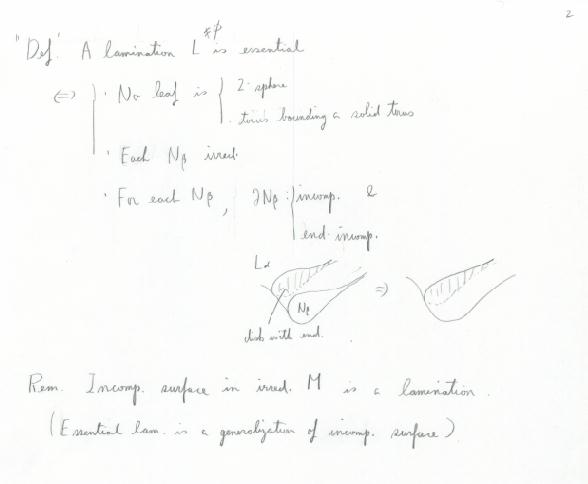 2
"Def." A lamination L ≠φ is essential
⇔ · No leaf is 2-sphere
· torus bounding a solid torus
· Each Nβ irred.
· For each Nβ, ∂Nβ : incomp. &
end. incomp.
Lα
Nβ ⇒
disk with end.
Rem. Incomp. surface in irred. M is a lamination.
(Essential lam. is a generalization of incomp. surface)